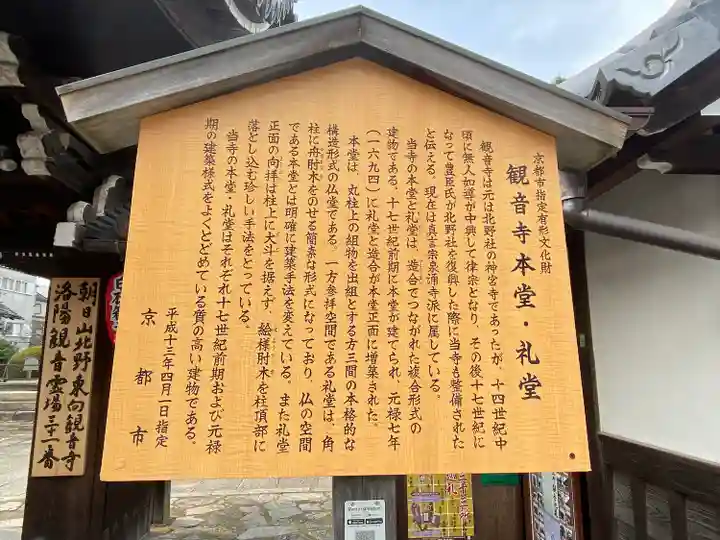 京都市指定有形文化財
観音寺本堂・礼堂
観音寺は元は北野社の神宮寺であったが、十四世紀中
頃に無人如導が中興して律宗となり、その後十七世紀に
なって豊臣氏が北野社を復興した際に当寺も整備された
と伝える。現在は真言宗泉涌寺派に属している。
当寺の本堂と礼堂は、造合でつながれた複合形式の
建物である。十七世紀前期に本堂が建てられ、元禄七年
(一六九四)に礼堂と造合が本堂正面に増築された。
本堂は、丸柱上の組物を出組とする方三間の本格的な
構造形式の仏堂である。一方参拝空間である礼堂は、角
柱に舟肘木をのせる簡素な形式になっており、仏の空間
である本堂とは明確に建築手法を変えている。また礼堂
正面の向拝は柱上に大斗を据えず、絵様肘木を柱頂部に
落とし込む珍しい手法をとっている。
当寺の本堂・礼堂はそれぞれ十七世紀前期および元禄
期の建築様式をよくとどめている質の高い建物である。
平成十三年四月一日指定
京都市
朝日山北野東向観音寺
洛陽観音霊場三十一番